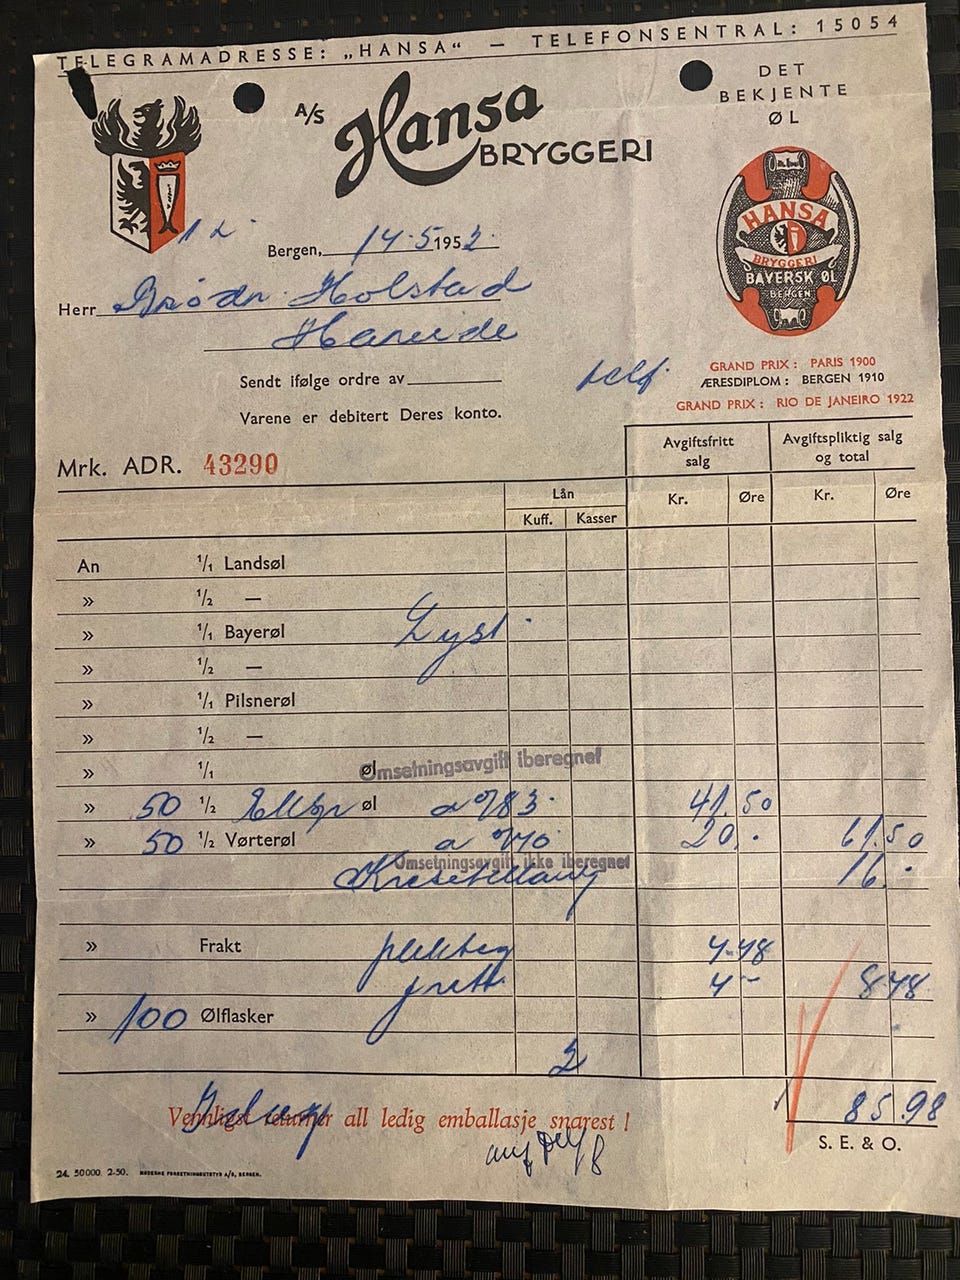 TELEGRAMADRESSE: „HANSA“ — TELEFONSENTRAL: 15054
A/S Hansa BRYGGERI
DET
BEKJENTE
ØL
HANSA
BRYGGERI
BAYERSK ØL
BERGEN
Bergen, 14-5 1952.
Herr Brødr. Holstad
Hareide
Sendt ifølge ordre av
Varene er debitert Deres konto.
telf.
GRAND PRIX: PARIS 1900
ÆRESDIPLOM: BERGEN 1910
GRAND PRIX: RIO DE JANEIRO 1922
Mrk. ADR. 43290
Avgiftsfritt salg
Avgiftspliktig salg og total
Lån
Kuff. Kasser
Kr. Øre Kr. Øre
An 1/1 Landsøl
» 1/2 —
» 1/1 Bayerøl Lyst.
» 1/2 —
» 1/1 Pilsnerøl
» 1/2 —
» 1/1 øl Omsetningsavgift iberegnet
» 50 1/2 øl a 0/83. 41.50
» 50 1/2 Vørterøl a 0/40 20.- 61.50
Omsetningsavgift ikke iberegnet
16.-
» Frakt 4.48
frakt 4- 8 48
» 100 Ølflasker
2
85.98
Vennligst returner all ledig emballasje snarest!
S. E. & O.
24. 50000. 2-50. MODERNE FORRETNINGSUTSTYR A/S, BERGEN.